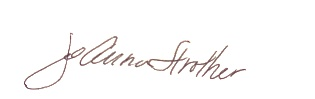 JoAnna Strother